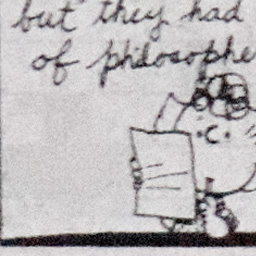 but they had
of philosophe